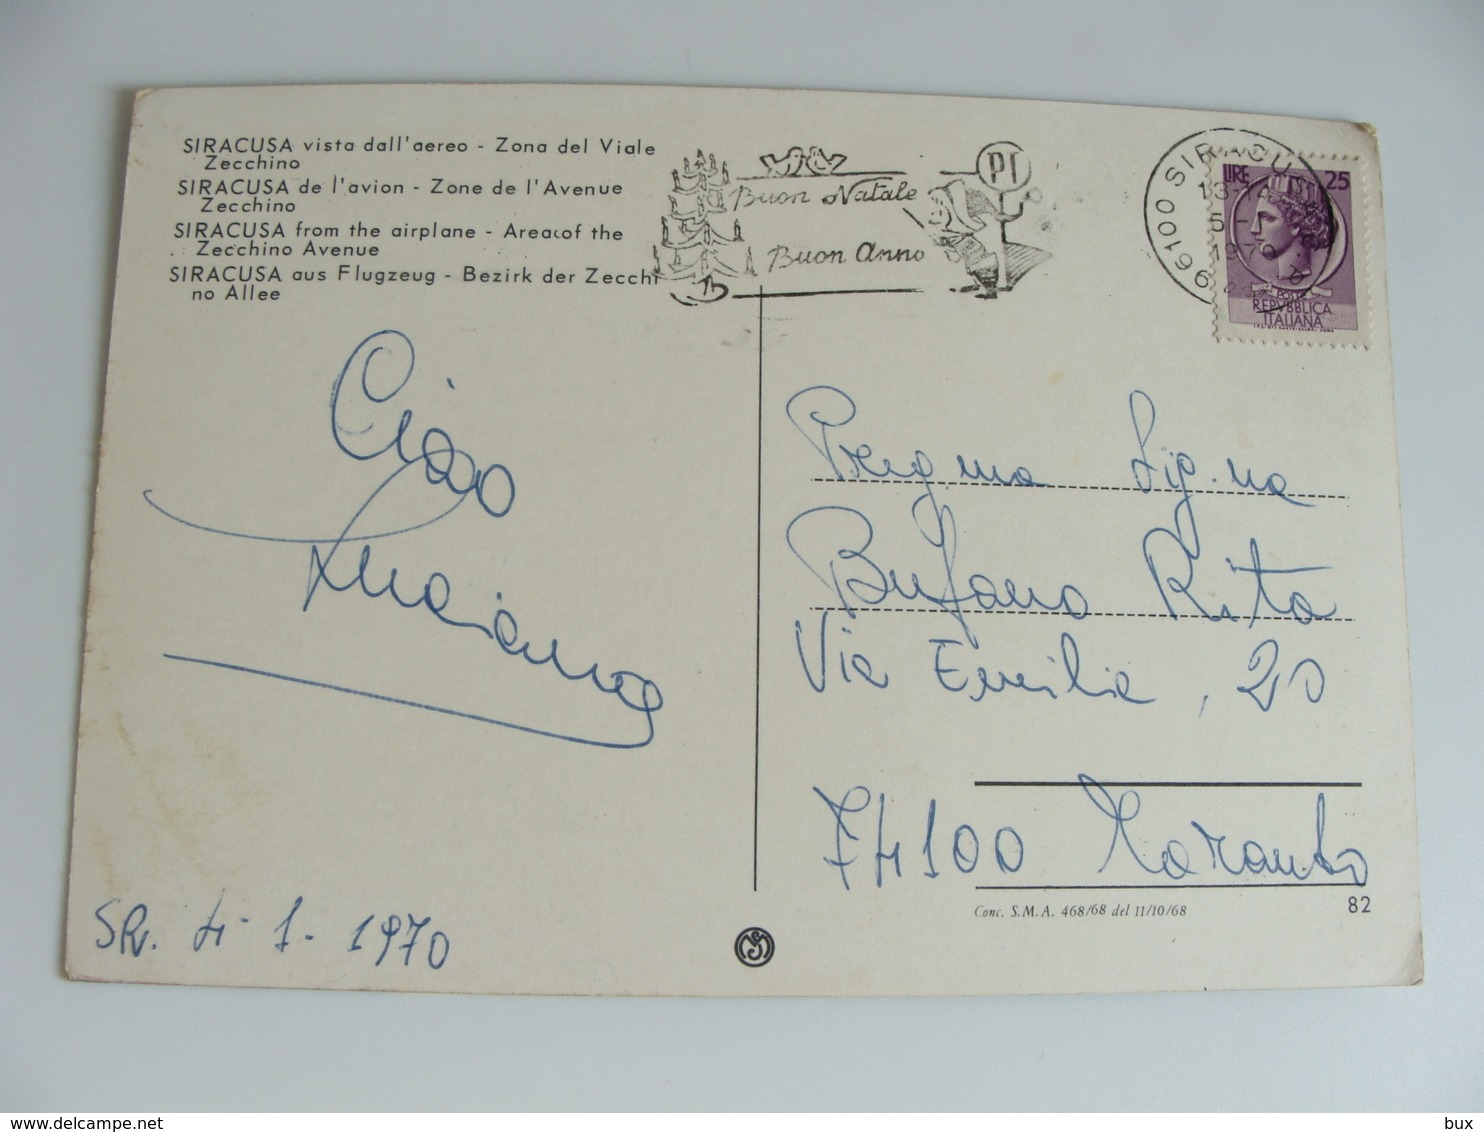 SIRACUSA vista dall'aereo - Zona del Viale
Zecchino
SIRACUSA de l'avion - Zone de l'Avenue
Zecchino
SIRACUSA from the airplane - Areacof the
Zecchino Avenue
SIRACUSA aus Flugzeug - Bezirk der Zecchi
no Allee
Buon Natale
Buon Anno
PT
96100 SIRACUSA
13-14
5-1
1970
LIRE 25
POSTE
REPVBBLICA
ITALIANA
Ciao
Luciano
SR. 4-1-1970
Preg.ma Sig.na
Bufano Rita
Via Emilia, 20
74100 Taranto
Conc. S.M.A. 468/68 del 11/10/68
82
delcampe.net
bux